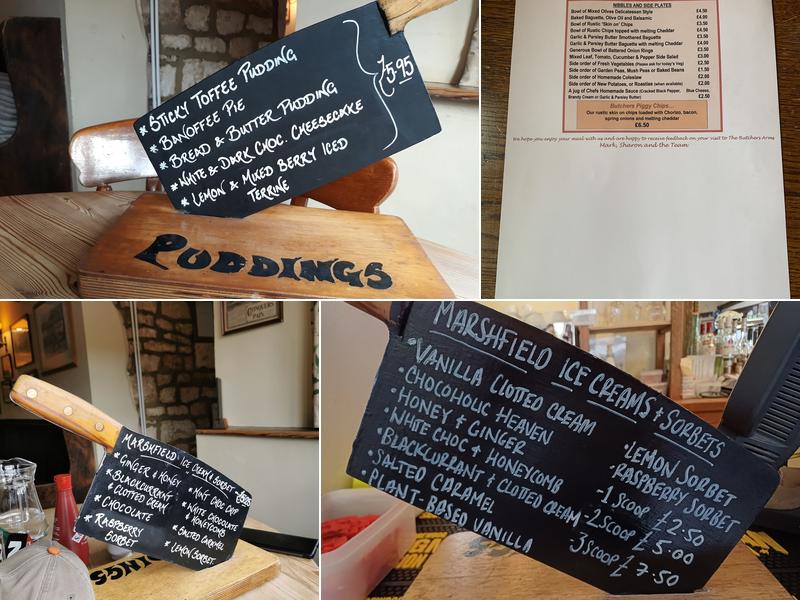 * STICKY TOFFEE PUDDING
* BANOFFEE PIE
* BREAD & BUTTER PUDDING
* WHITE & DARK CHOC. CHEESECAKE
* LEMON & MIXED BERRY ICED
TERRINE
£5.95
PUDDINGS
NIBBLES AND SIDE PLATES
Bowl of Mixed Olives Delicatessen Style £4.50
Baked Baguette, Olive Oil and Balsamic £4.00
Bowl of Rustic 'Skin on' Chips £3.50
Bowl of Rustic Chips topped with melting Cheddar £4.50
Garlic & Parsley Butter Smothered Baguette £3.50
Garlic & Parsley Butter Baguette with melting Cheddar £4.00
Generous Bowl of Battered Onion Rings £3.50
Mixed Leaf, Tomato, Cucumber & Pepper Side Salad £3.00
Side order of Fresh Vegetables (Please ask for today's Veg) £3.50
Side order of Garden Peas, Mush Peas or Baked Beans £1.50
Side order of Homemade Coleslaw £2.00
Side order of New Potatoes, or Roasties (when available) £2.00
A jug of Chefs Homemade Sauce (Cracked Black Pepper, Blue Cheese,
Brandy Cream or Garlic & Parsley Butter) £2.50
Butchers Piggy Chips...
Our rustic skin on chips loaded with Chorizo, bacon,
spring onions and melting cheddar
£6.50
We hope you enjoy your meal with us and are happy to receive feedback on your visit to The Butchers Arms
Mark, Sharon and the Team
MARSHFIELD ICE CREAM & SORBET
* GINGER & HONEY
* BLACKCURRANT
& CLOTTED CREAM
* CHOCOLATE
* RASPBERRY
SORBET
* MINT CHOC CHIP
* WHITE CHOCOLATE
& HONEYCOMB
* SALTED CARAMEL
* LEMON SORBET
MARSHFIELD ICE CREAMS & SORBETS
• VANILLA CLOTTED CREAM
• CHOCOHOLIC HEAVEN
• HONEY & GINGER
• WHITE CHOC & HONEYCOMB
• BLACKCURRANT & CLOTTED CREAM
• SALTED CARAMEL
• PLANT-BASED VANILLA
• LEMON SORBET
• RASPBERRY SORBET
-1 SCOOP £2.50
-2 SCOOP £5.00
3 SCOOP £7.50